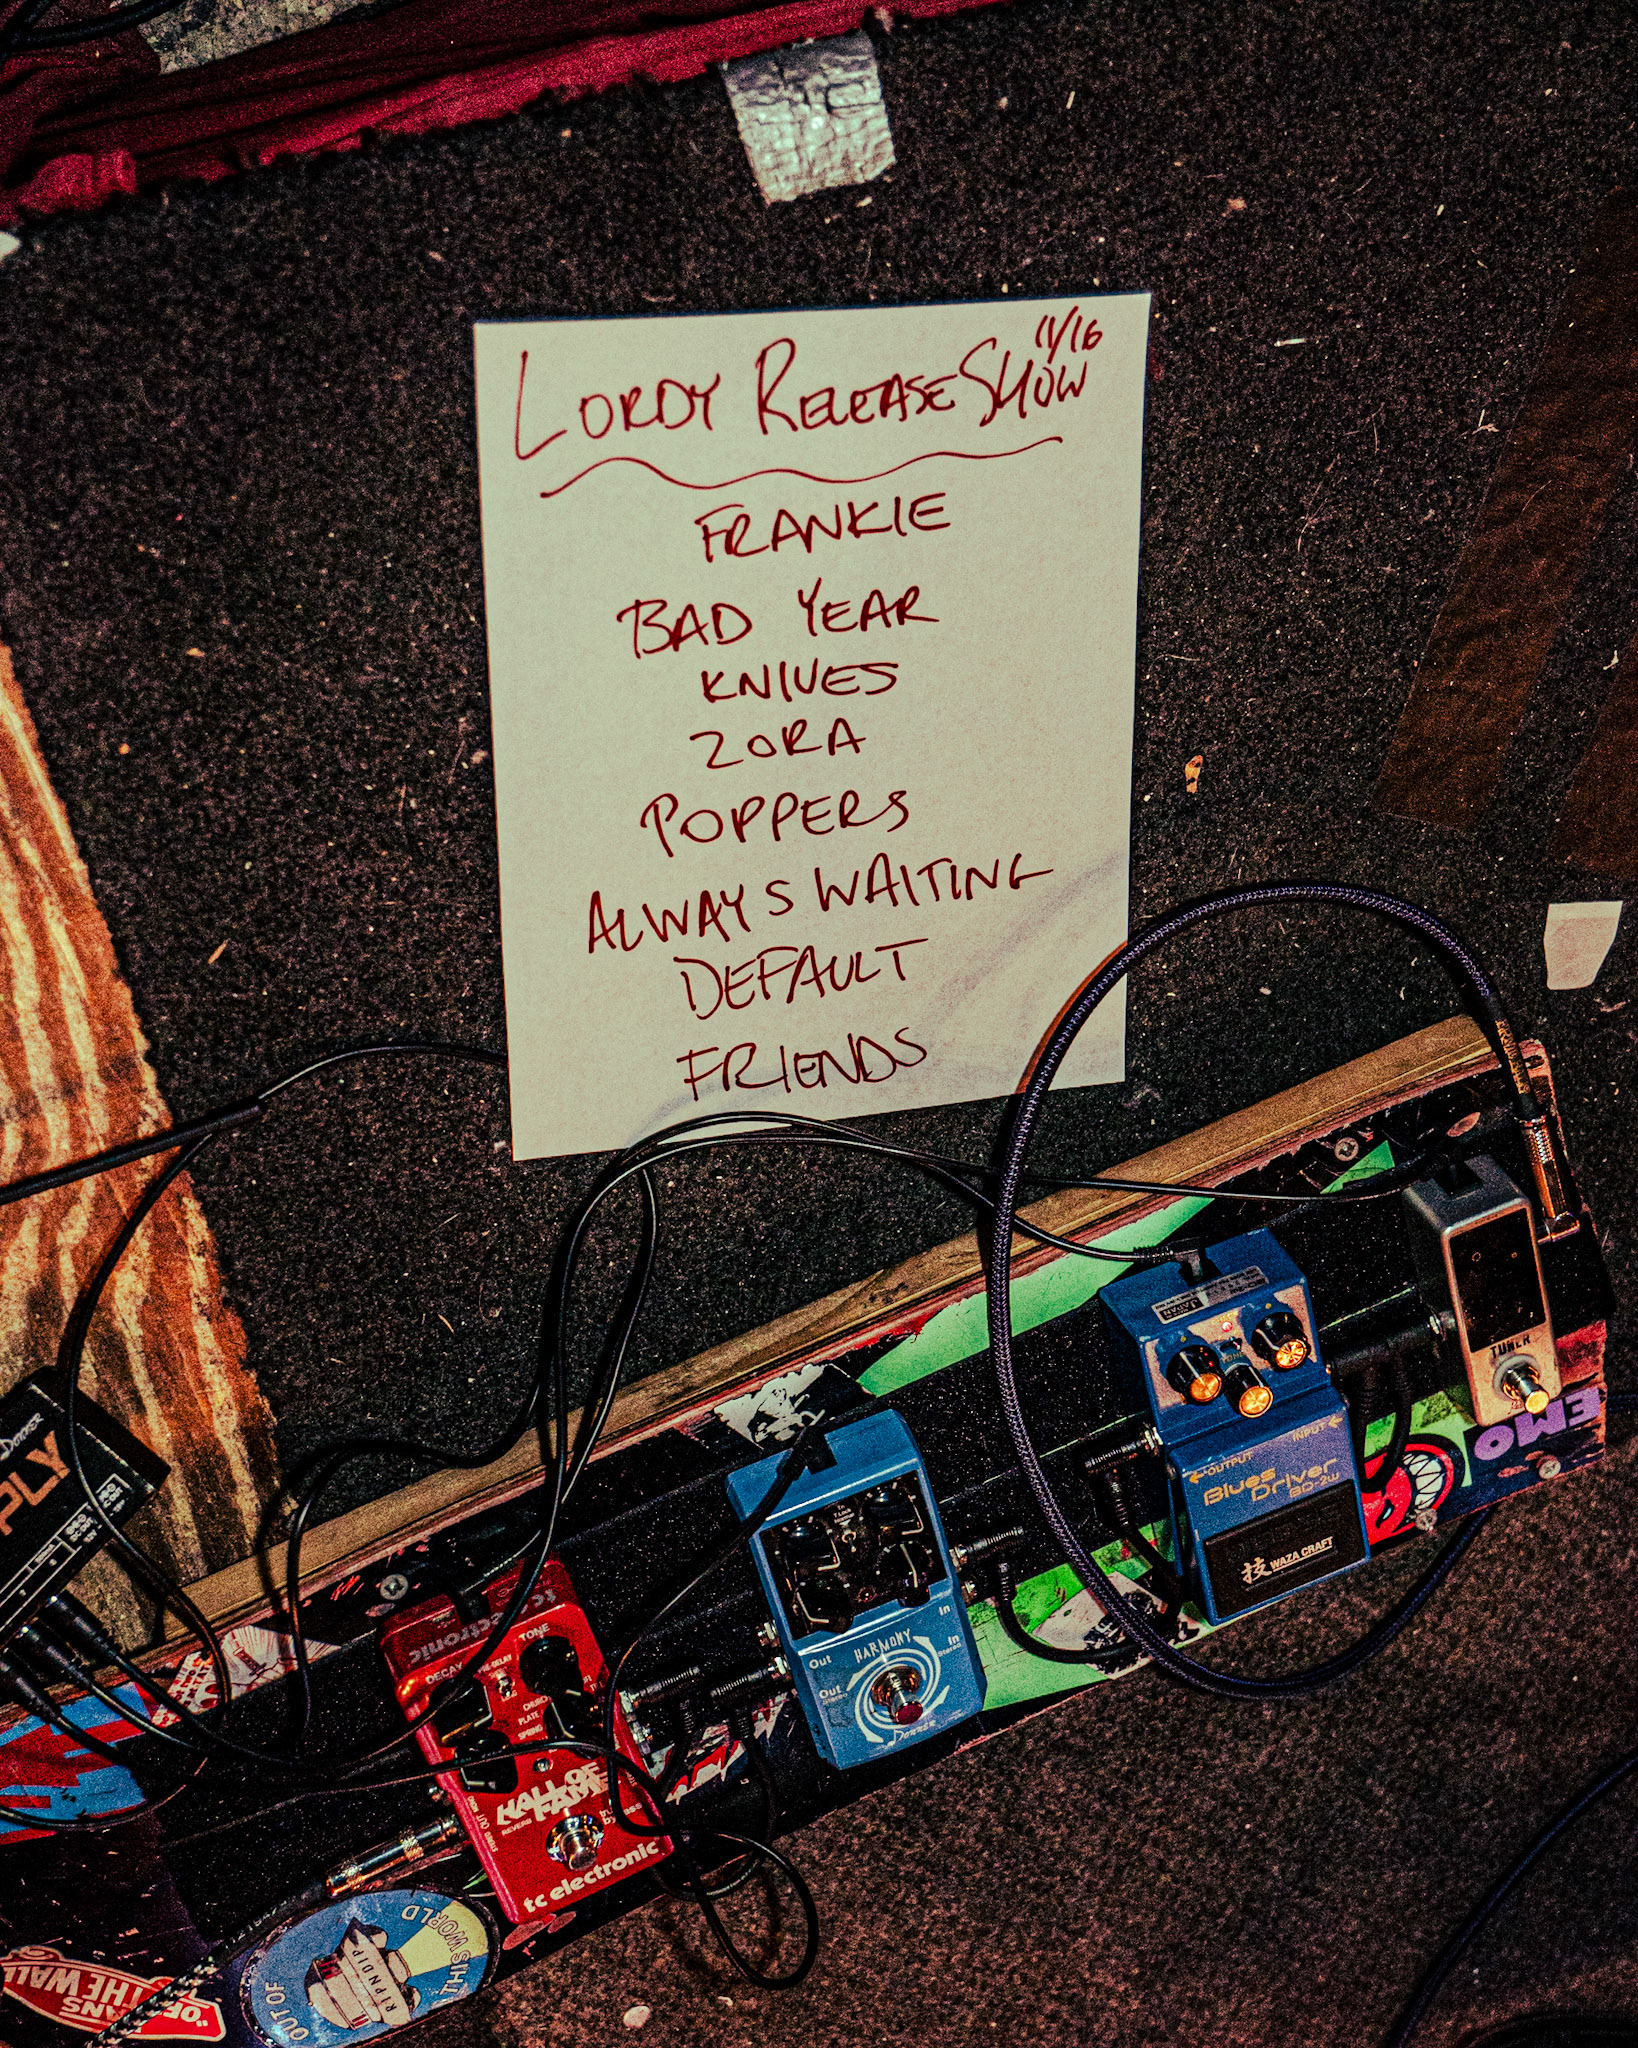 11/16
LORDY RELEASE SHOW
FRANKIE
BAD YEAR
KNIVES
ZORA
POPPERS
ALWAYS WAITING
DEFAULT
FRIENDS
TUNER
EMO
INPUT
OUTPUT
Blues
Driver
BD-2W
技 WAZA CRAFT
JAPAN
TONE
In
In
Stereo
HARMONY
Out
Out
Stereo
Donner
tc electronic
TONE
DECAY
PRE-DELAY
CHURCH
PLATE
SPRING
HALL OF
FAME
REVERB
STEREO OUT MONO
tc electronic
Donner
PLY
OUT OF
THIS WORLD
RIPNDIP
VANS
"OFF THE WALL"